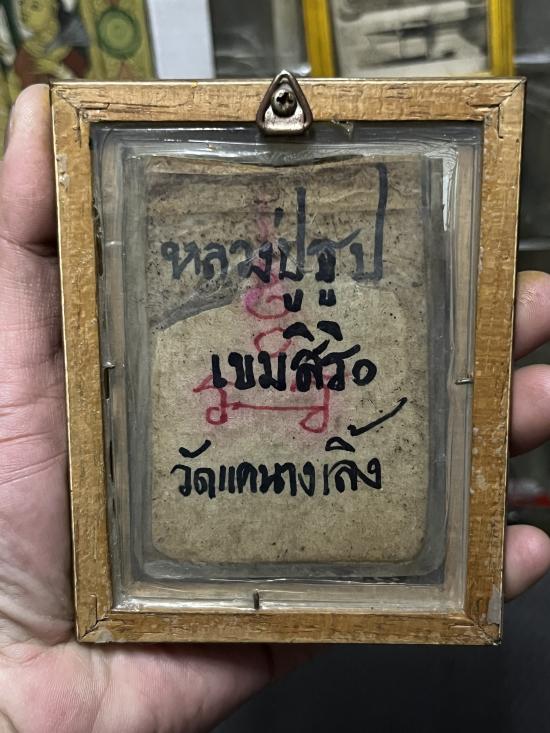 หลวงปู่ธูป
เขมสิริ๐
วัดแคนางเลิ้ง